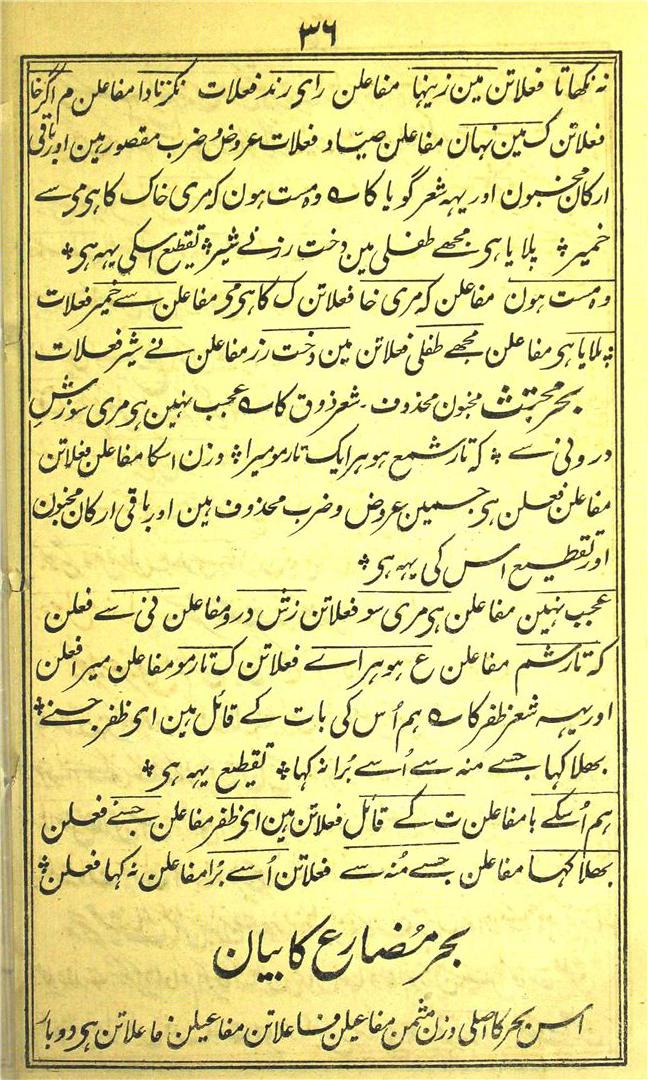 ۳۶
نہ کھاتا فعلاتن مین زینہا مفاعلن رای رند فعلات نکرتا دا مفاعلن م اگر خا
فعلاتن ک مین نہان مفاعلن صیاد فعلات عروض و ضرب مقصور ہین اور باقی
ارکان مخبون اور یہہ شعر گویا کا ؎ وہ مست ہون کہ مری خاک کا ہی می سے
خمیر ٭ پلایا ہی مجھے طفلی مین دختِ رز نے شیر ٭ تقطیع اسکی یہہ ہی ٭
وہ مست ہون مفاعلن کہ مری خا فعلاتن ک کا ہی می مفاعلن سے خمیر فعلات
پلایا ہی مفاعلن مجھے طفلی فعلاتن مین دخت رز مفاعلن نے شیر فعلات
بحر مجتث مخبون محذوف ۔ شعر ذوق کا ؎ عجب نہین ہی مری سوزشِ
درونی سے ٭ کہ تار شمع ہو ہر ایک تار مو میرا ٭ وزن اسکا مفاعلن فعلاتن
مفاعلن فعلن ہی جسمین عروض و ضرب محذوف ہین اور باقی ارکان مخبون
اور تقطیع اس کی یہہ ہی ٭
عجب نہین مفاعلن ہی مری سو فعلاتن زش درو مفاعلن نی سے فعلن
کہ تار شم مفاعلن ع ہو ہر اے فعلاتن ک تار مو مفاعلن میرا فعلن
اور یہہ شعر ظفر کا ؎ ہم اُس کی بات کے قائل ہین ای ظفر جسنے ٭
بھلا کہا جسے منہ سے اُسے بُرا نہ کہا ٭ تقطیع یہہ ہی ٭
ہم اُسکے با مفاعلن ت کے قائل فعلاتن ہین ای ظفر مفاعلن جسنے فعلن
بھلا کہا مفاعلن جسے مُنہ سے فعلاتن اُسے بُرا مفاعلن نہ کہا فعلن ٭
بحر مُضارع کا بیان
اس بحر کا اصلی وزن مثمن مفاعیلن فاعلاتن مفاعیلن فاعلاتن ہی دو بار